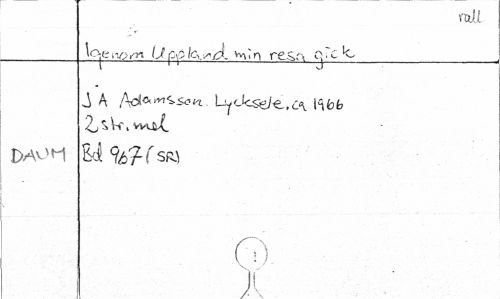 rall
Igenom Uppland min resa gick
JA Adamsson. Lycksele, ca 1966
2 str. mel
DAUM Bd 967 (SR)